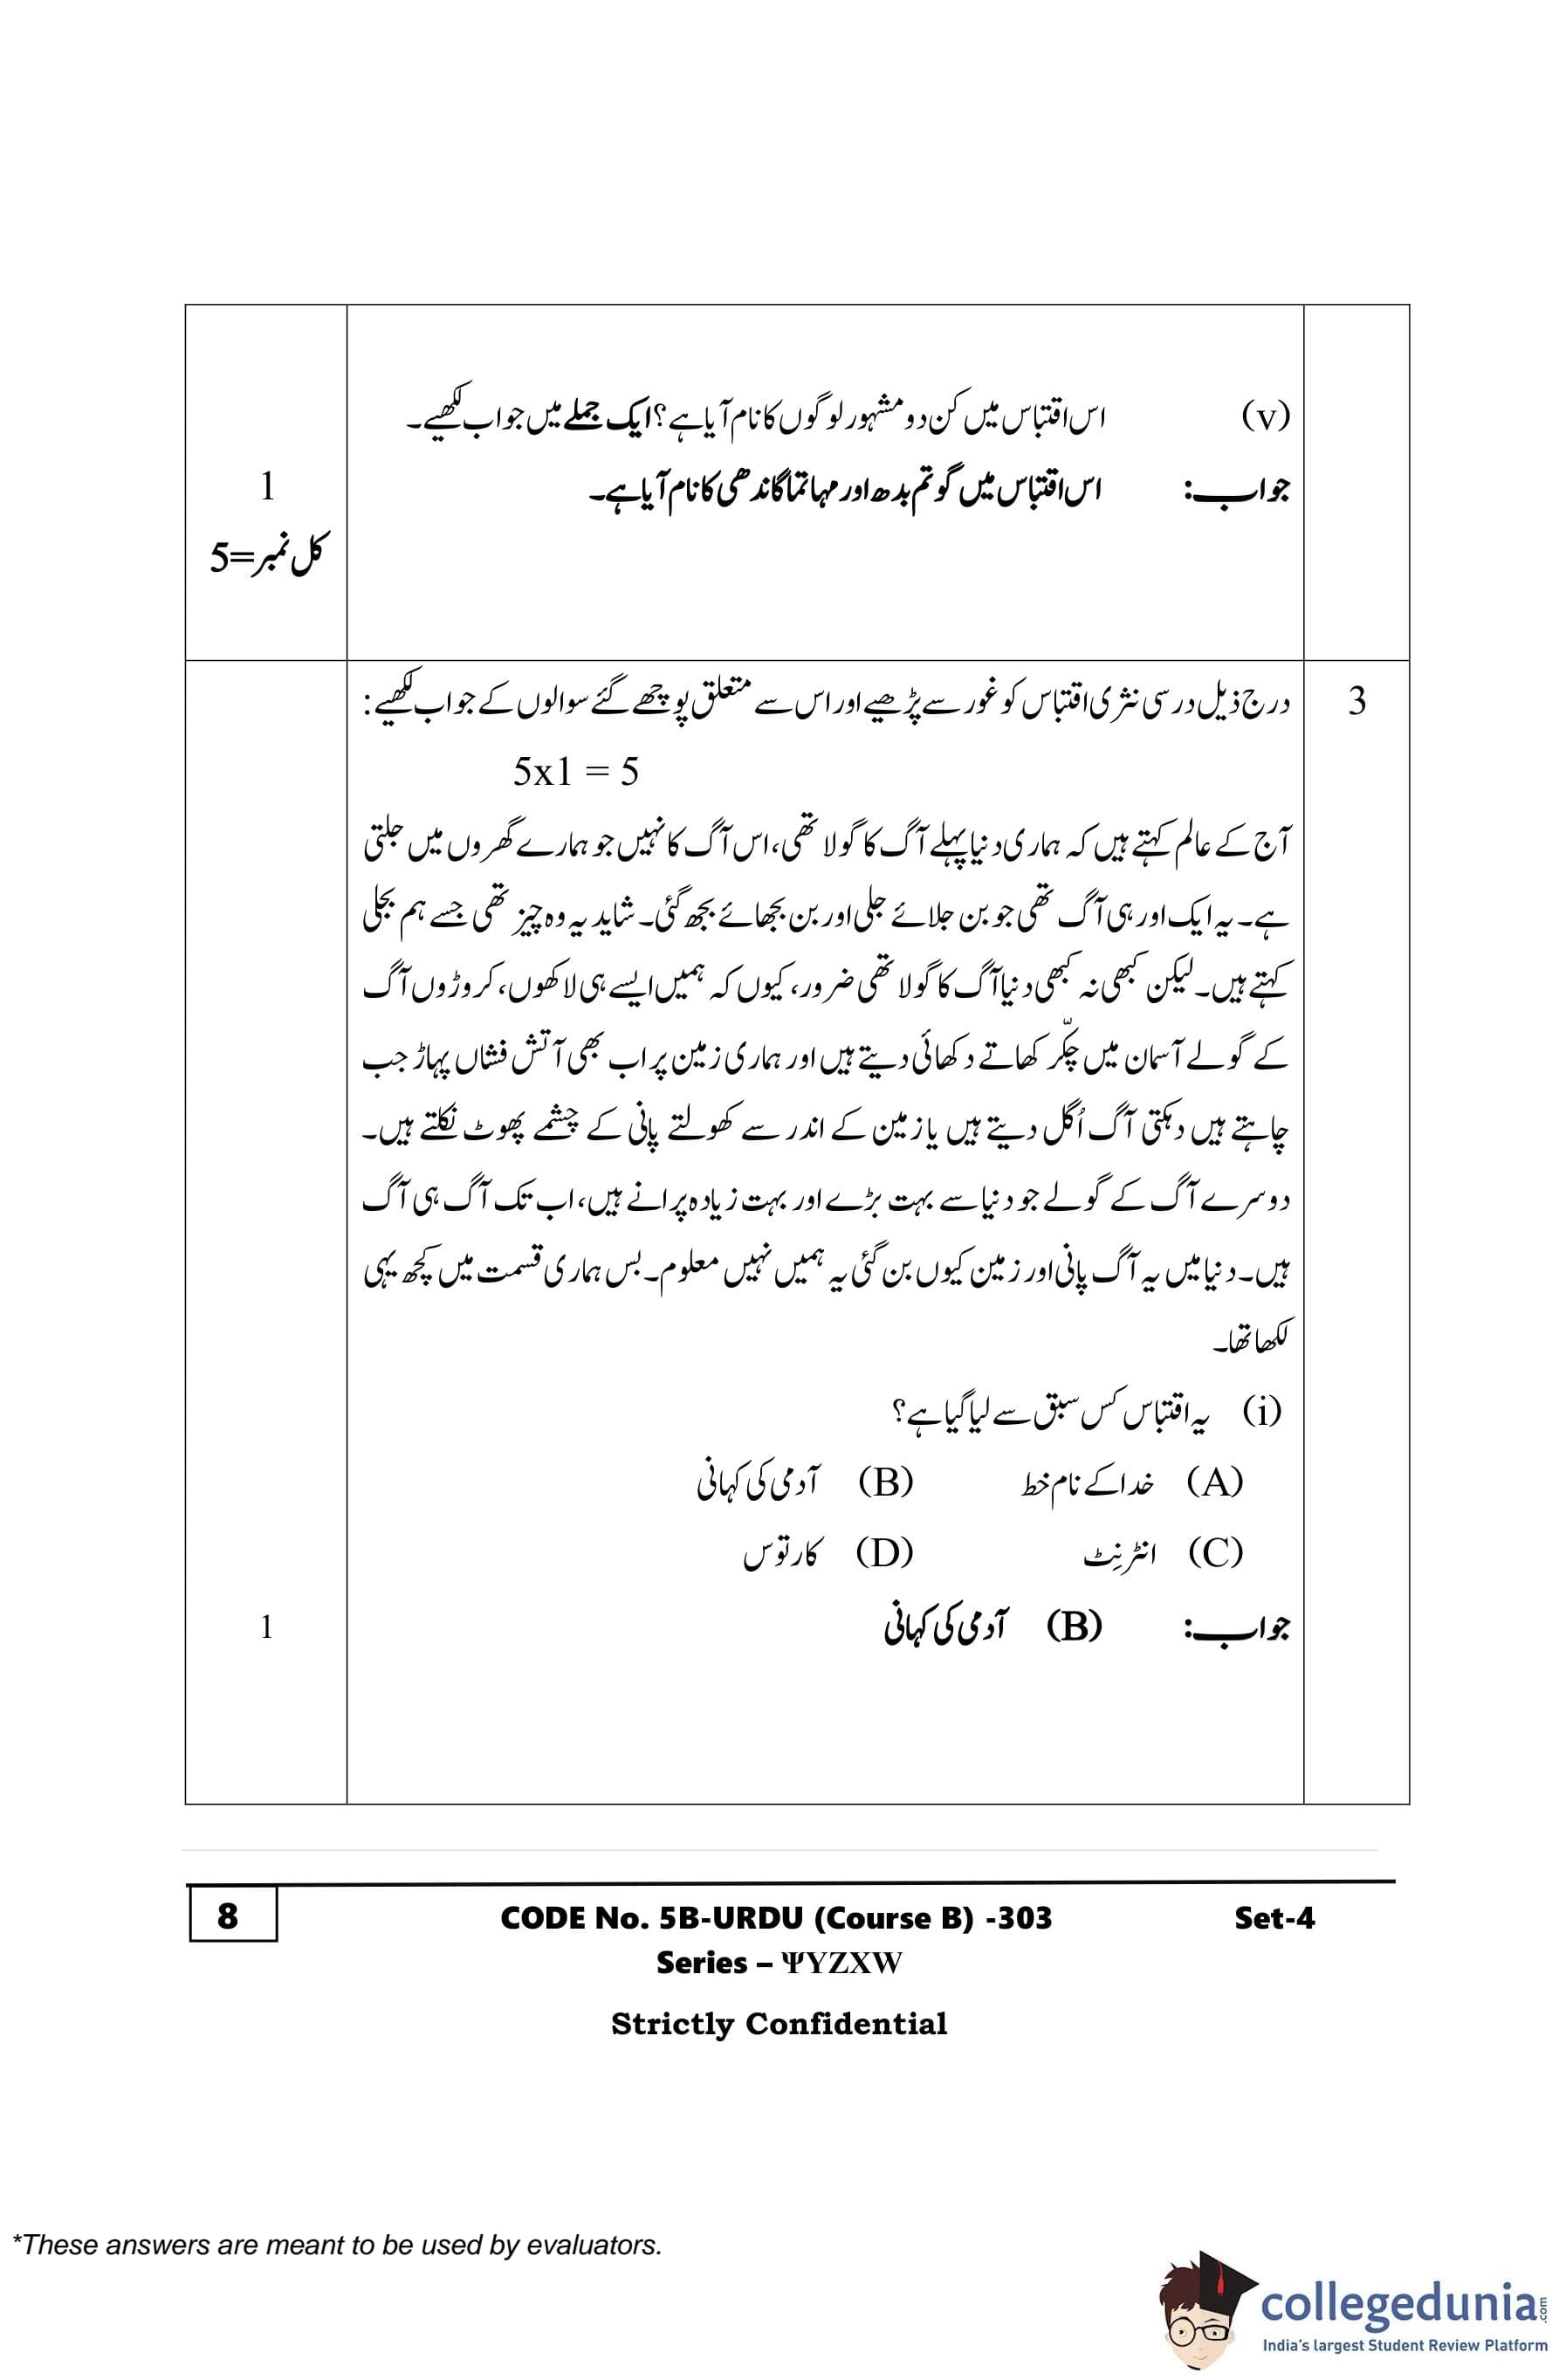 (v) اس اقتباس میں کن دو مشہور لوگوں کا نام آیا ہے؟ ایک جملے میں جواب لکھیے۔
جواب: اس اقتباس میں گوتم بدھ اور مہاتما گاندھی کا نام آیا ہے۔ 1
کل نمبر=5
3 درج ذیل درسی نثری اقتباس کو غور سے پڑھیے اور اس سے متعلق پوچھے گئے سوالوں کے جواب لکھیے:
5x1 = 5
آج کے عالم کہتے ہیں کہ ہماری دنیا پہلے آگ کا گولا تھی، اس آگ کا نہیں جو ہمارے گھروں میں جلتی
ہے۔ یہ ایک اور ہی آگ تھی جو بن جلائے جلی اور بن بجھائے بجھ گئی۔ شاید یہ وہ چیز تھی جسے ہم بجلی
کہتے ہیں۔ لیکن کبھی نہ کبھی دنیا آگ کا گولا تھی ضرور، کیوں کہ ہمیں ایسے ہی لاکھوں، کروڑوں آگ
کے گولے آسمان میں چکّر کھاتے دکھائی دیتے ہیں اور ہماری زمین پر اب بھی آتش فشاں پہاڑ جب
چاہتے ہیں دہکتی آگ اُگل دیتے ہیں یا زمین کے اندر سے کھولتے پانی کے چشمے پھوٹ نکلتے ہیں۔
دوسرے آگ کے گولے جو دنیا سے بہت بڑے اور بہت زیادہ پرانے ہیں، اب تک آگ ہی آگ
ہیں۔ دنیا میں یہ آگ پانی اور زمین کیوں بن گئی یہ ہمیں نہیں معلوم۔ بس ہماری قسمت میں کچھ یہی
لکھا تھا۔
(i) یہ اقتباس کس سبق سے لیا گیا ہے؟
(A) خدا کے نام خط (B) آدمی کی کہانی
(C) انٹرنِٹ (D) کارتوس
جواب: (B) آدمی کی کہانی 1
8 CODE No. 5B-URDU (Course B) -303 Set-4
Series – ΨYZXW
Strictly Confidential
*These answers are meant to be used by evaluators.
collegedunia.com
India's largest Student Review Platform